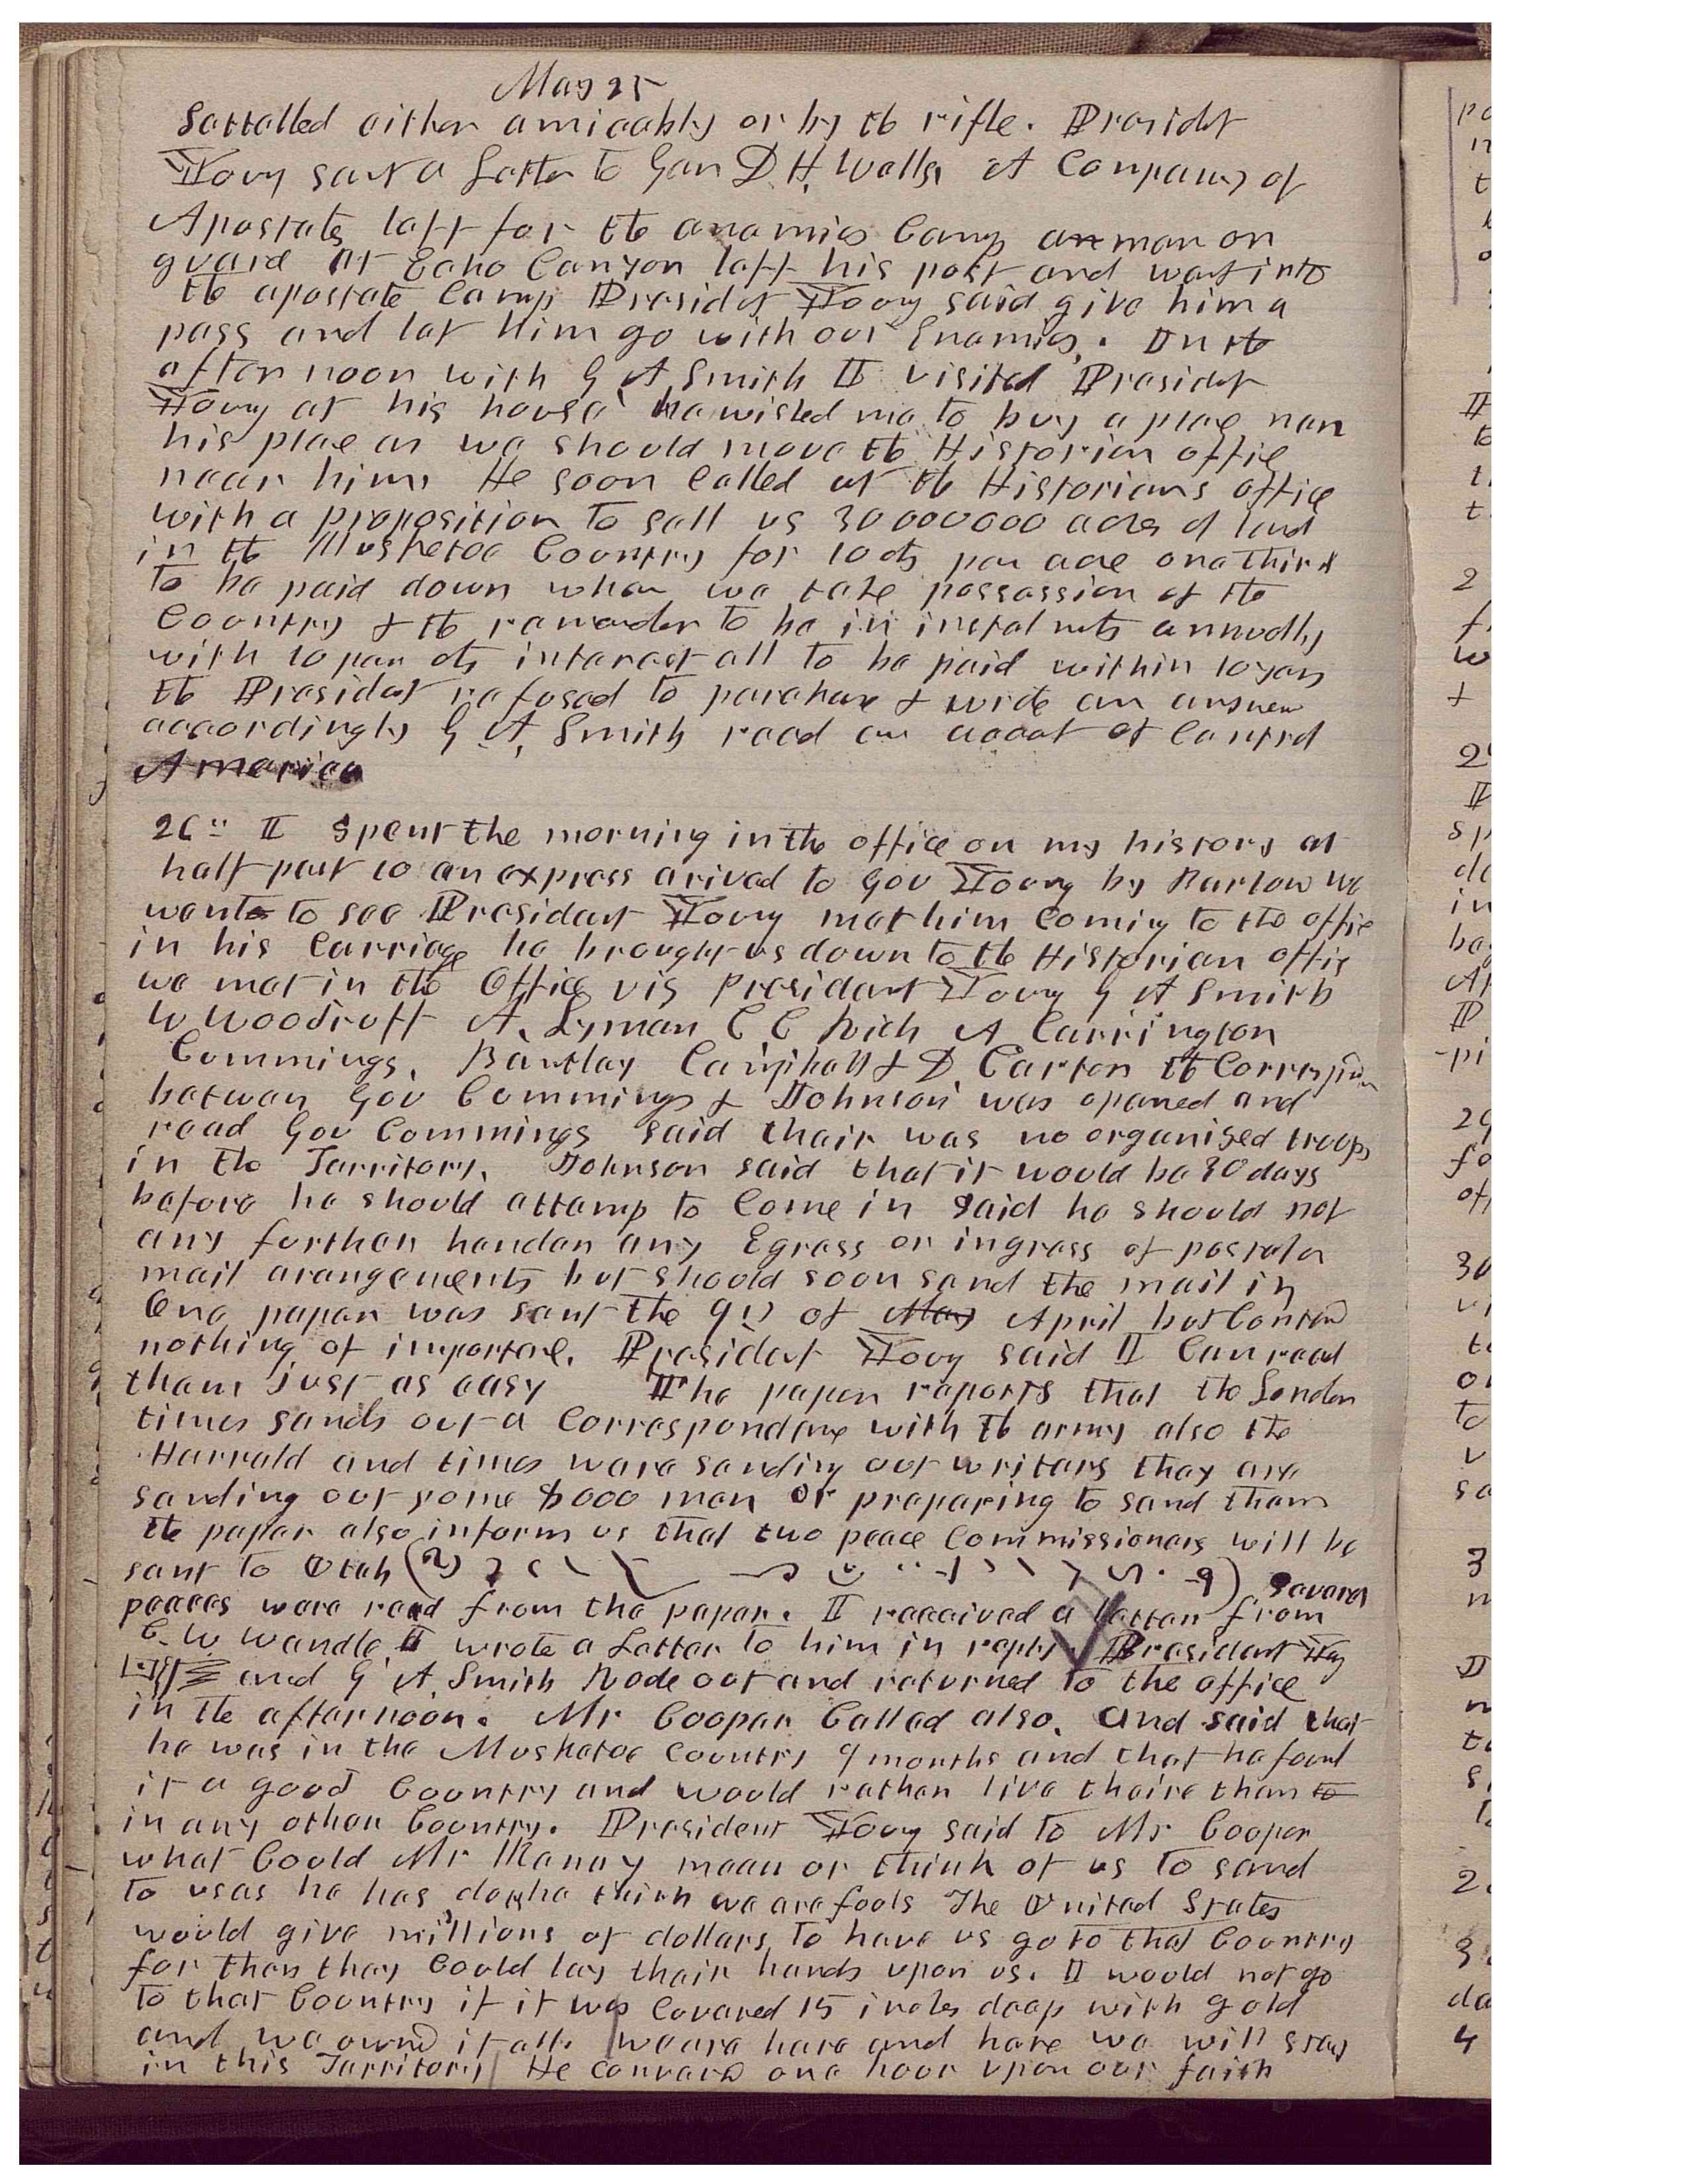 May 25
Settelled either amicably or by the rifle. Presidet
Young sent a Letter to Gen D H. Wells. A Company of
Apostates left for the enemies Camp a man on
guard at Echo Canyon left his post and went into
the apostate Camp Presidet Young said give him a
pass and let Him go with our Enemies. In the
after noon with G A Smith I visited Presidet
Young at his house he wished me to buy a place near
his place as we should move the Historian office
near him. He soon Called at the Historians office
with a proposition to sell us 30000000 acres of land
in the Musketoe Country for 10 cts per acre one third
to be paid down when we take possession of the
Country & the remander to be in instalmets annually
with 10 per cts interest all to be paid within 10 years
the President refused to purchase & wrote an answer
accordingly G A, Smith read an accout of Central
America
26" I spent the morning in the office on my history at
half past 10 an express arived to Gov Young by Barlow we
went to see President Young met him Coming to the office
in his Carriage he brought us down to the Historian office
we met in the Office vis President Young G A Smith
W Woodruff A. Lyman C C Rich A Carrington
Cummings. Bentley Campbell & D. Carter the Correspon
betwen Gov Cummings & Johnson was opened and
read Gov Cummings said thair was no organised troops
in the Territory. Johnson said that it would be 30 days
before he should attemp to Come in said he should not
any further hender any Egress or ingress of postal or
mail arangements but should soon send the mail in
One paper was sent the 9th of May April but Contain
nothing of importance. President Young said I Can read
them just as easy The paper reports that the London
times sends out a Correspondence with the army also the
Harrald and times were sending out writers they are
sending out some 5000 men or preparing to send them
the paper also inform us that two peace Commissioners will be
sent to Utah ( ) Several
peaces were read from the paper. I received a letter from
C. W Wandle. I wrote a Letter to him in reply President Young
and G A. Smith Rode out and returned to the office
in the afternoon. Mr Cooper Called also. And said that
he was in the Musketoe Country 9 months and that he found
it a good Country and would rather live thaire than to
in any other Country. President Young said to Mr Cooper
what Could Mr Kenny mean or think of us to send
to us as he has does he think we are fools The United States
would give millions of dollars to have us go to that Country
for then they Could lay thair hands upon us. I would not go
to that Country if it was Covered 15 inches deep with gold
and we owned it all. we are here and here we will stay
in this Territory He conversed one hour upon our faith